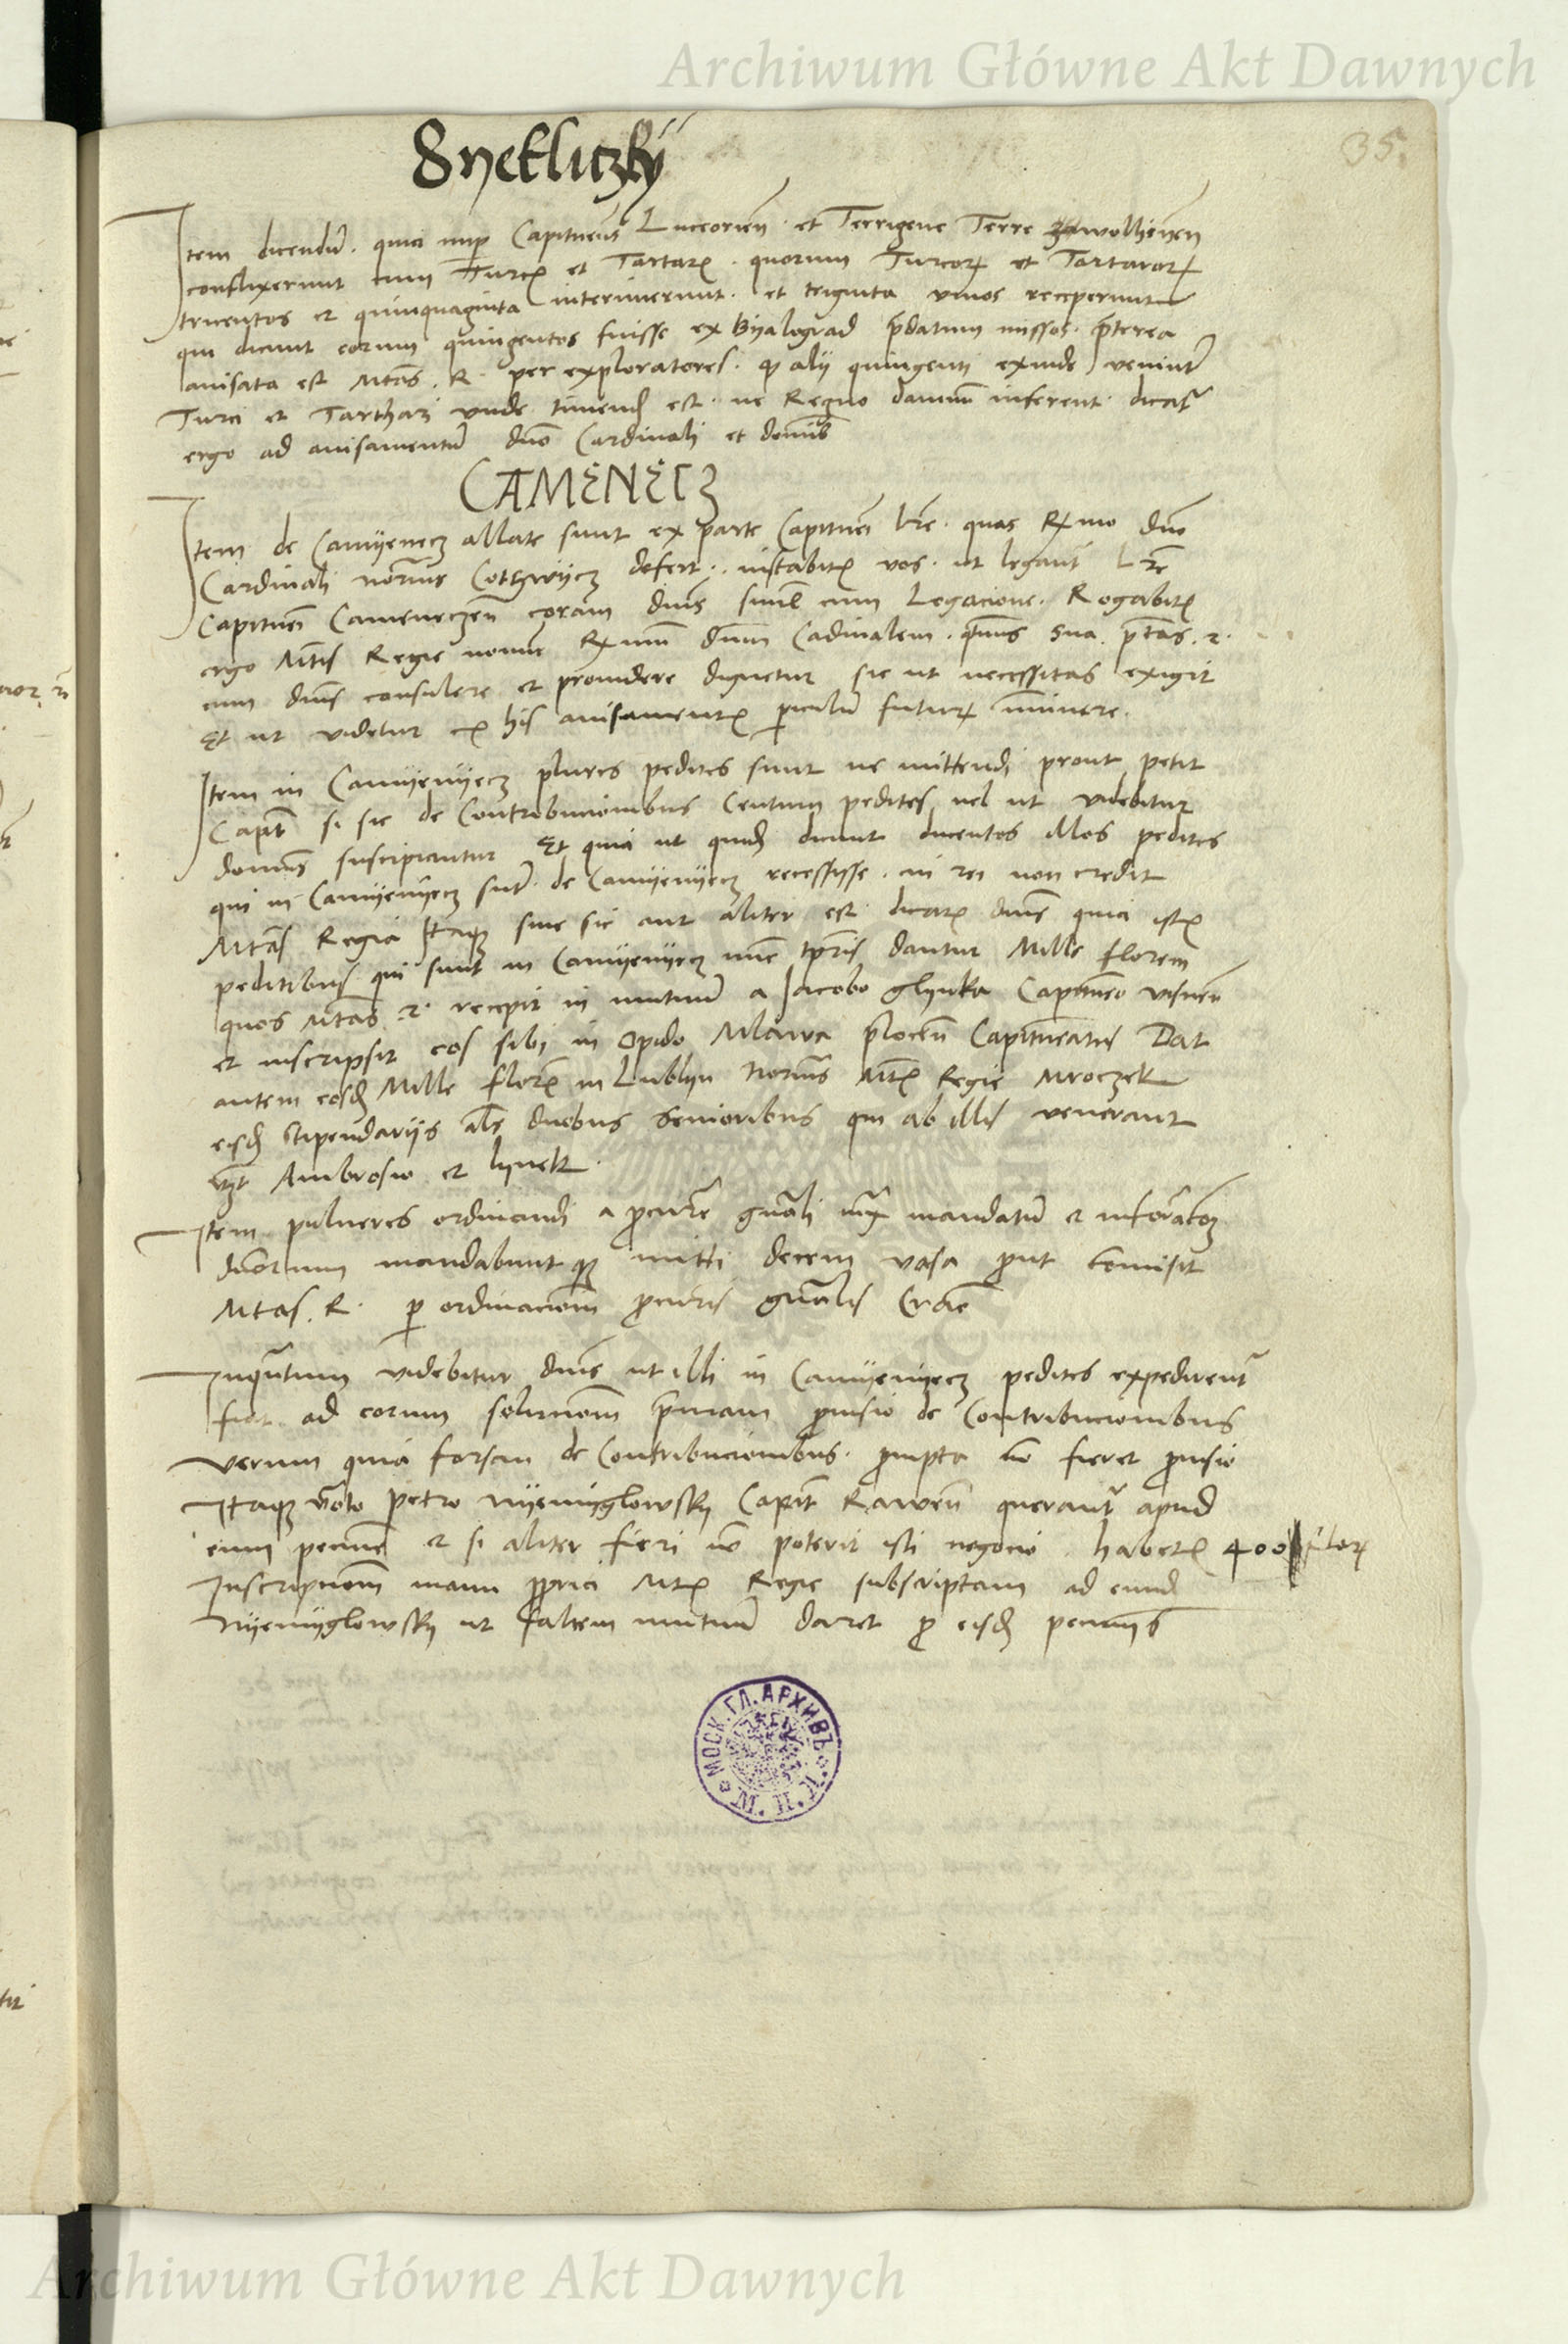 Archiwum Główne Akt Dawnych
35.
Item dicendū. quia nup Capitneus Luceorien̄ et Terrigene Terre wolhinen̄
conflixerunt cum Turcꝭ et Tartarꝭ. quorum Turcoꝝ et Tartaroꝝ
trecentos et quinquaginta interimerunt. et triginta vivos receperunt
qui dicunt eorum quingentos fuisse ex Byalograd p̄datum missos. p̄terea
avisata est Mtās. R. per exploratores. qͦ alij quingenti exinde veniūt
Turci et Tarthari unde timend est. ne Regno damnū inferent. dicat̄
ergo ad avisamentū dnō Cardinali et domīs
CAMENECZ
Item de Camyenecz allate sunt ex parte Capitnei lrē. quas Rmo dnō
Cardinali noster Cothwycz defert. instabitꝭ vos. ut legant Lrē
Capitnei Cameneczen̄ coram dnīs simul cum Legacione. Rogabitꝭ
ergo Mtīs Regie nomine Rmum dnūm Cardinalem. qtēnus sua. p̄tas. R.
cum dnīs consulere et providere dignetur sic ut necessitas exigit
Et ut videtur ex his avisamentꝭ piculū futuꝝ iminere.
Item in Camyenyecz plures pedites sunt ne mittendi prout petit
Capit̄ si sic de Contribucionibus Centum pedites vel ut videbitur
domīs suscipiantur Et quia ut quidā dicunt ducentos illos pedites
qui in Camyenyecz sunt. de Camyenyecz recessisse. in rei non credit
Mtās Regia Itaqꝫ sive sic aut aliter est. dicatꝭ dnīs quia istꝭ
peditibus qui sunt in Camyenyecz nunc tpris dantur Mille floren̄
quos Mtās R. recepit in mutuū a Jacobo glynka Capitneo visnen̄
et inscripsit eos sibi in Opido Mlawa plocen̄ Capitneatus Dat
autem eosd Mille florꝭ in Lublyn Mtꝭ Regie Mroczek
eisd stipendarijs als duobus senioribus qui ab illis venerant
vzt Ambrosio et hynek.
Item pulveres ordinandi a procurē gnāli iuxta mandatū et informacōꝫ
dnōrum mandabunt qꝫ mitti decem vasa put comisit
Mtas. R. p ordinacionem procuris gnālis Crac̄
Inquātum videbitur dnīs ut illi in Camyenyecz pedites expedirent̄
fiat ad eorum solucionem primam provisio de Contribucionibus
verum quia forsan de Contribucionibus. prompta nō fieret provisio
Itaqꝫ Petro nyemyglowsky Capit̄ Rawen̄ querant̄ apud
eum pecunie et si aliter fieri nō poterit isti negocio. habetꝭ 400 floꝝ
Inscripcionem manu propria Mtꝭ Regie subscriptam ad eund
Nyemyglowsky ut saltem mutuū daret p eisd pecunijs
МОСК. ГЛ. АРХИВЪ
М. И. Д.
Archiwum Główne Akt Dawnych